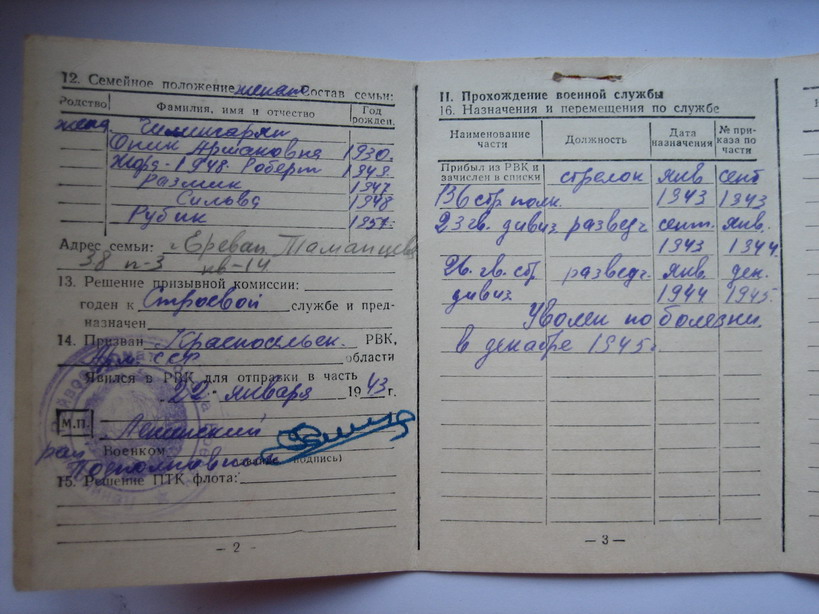 12. Семейное положение женат Состав семьи:
Родство
Фамилия, имя и отчество
Год рожден.
жена
Оник Аршаковна 1930.
1948. Роберт 1948.
Размик 1947
Сильва 1948
Рубик
Адрес семьи: г. Ереван Таманцев
38 п-3 кв-14
13. Решение призывной комиссии:
годен к Строевой службе и пред-
назначен
14. Призван Красносельск. РВК,
Арм. ССР области
Явился в РВК для отправки в часть
22 января 1943 г.
М.П. Ленинский
рай Военком
подпись)
15. Решение ПТК флота:
— 2 —
II. Прохождение военной службы
16. Назначения и перемещения по службе
Наименование части
Должность
Дата назначения
№ при-каза по части
Прибыл из РВК и
зачислен в списки стрелок янв сент
136 стр полк. 1943 1943
23 гв. дивиз разведч сент. янв.
1943 1944.
26. гв. стр разведч. янв. дек.
дивиз 1944 1945.
Уволен по болезни
в декабре 1945г.
— 3 —